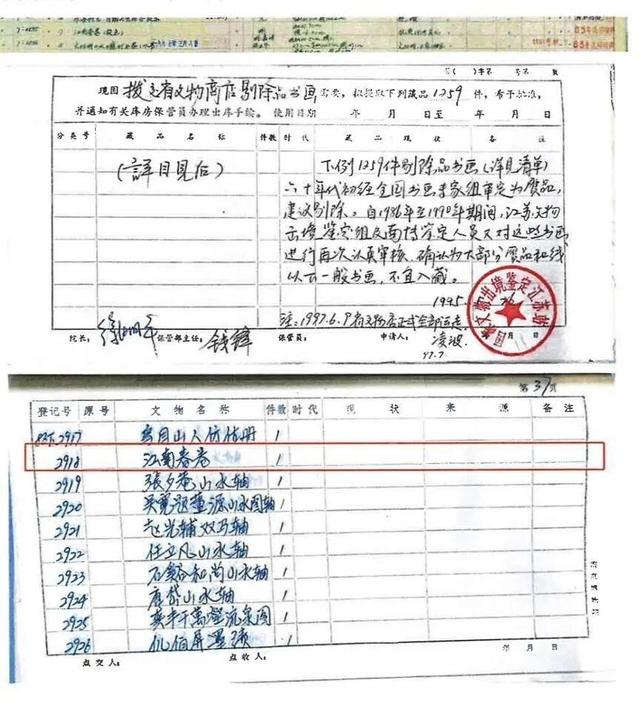 字( )字不 号不 页
现因 拨交省文物商店剔除品书画 需要，拟提取下列藏品1259件，希予批准，
并通知有关库房保管员办理出库手续。使用日期 年 月 日至 年 月 日
分类号 藏品名称 件数 时代 藏品现状 备注
(详目见后) 下例1259件剔除品书画(详见清单)
六十年代初经全国书画专家组审定为赝品，
建议剔除。自1986年至1990年期间，江苏文物
出境鉴定组及南博鉴定人员又对这些书画
进行再次认真审核，确认为大部分赝品和线
以下一般书画，不宜入藏。
1995.
注：1997.6.9省文物店正式全部运走
年 月 日
院长： 徐湖平 保管部主任： 钱锋 保管员： 申请人： 凌波
97.7.
国家文物出境鉴定江苏站
第37页
登记号 原号 文物名称 件数 时代 现状 来源 备注
2917 1
2918 江南春卷 1
2919 张夕庵山水轴 1
2920 吴宽题董源山水图轴 1
2921 赵光辅双马轴 1
2922 任立凡山水轴 1
2923 石谿和尚山水轴 1
2924 唐岱山水轴 1
2925 万壑流泉图 1
2926 仉伯屏墨 1
点交人： 点收人： 年 月 日